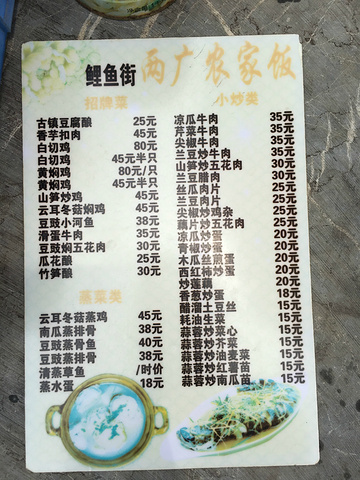 鲤鱼街 两广农家饭
招牌菜
古镇豆腐酿 25元
香芋扣肉 45元
白切鸡 80元
白切鸡 45元半只
黄焖鸡 80元/只
黄焖鸡 45元半只
山笋炒鸡 45元
云耳冬菇焖鸡 45元
豆豉小河鱼 38元
滑蛋牛肉 35元
豆豉焖五花肉 30元
瓜花酿 25元
竹笋酿 30元
蒸菜类
云耳冬菇蒸鸡 45元
南瓜蒸排骨 38元
豆豉蒸骨鱼 40元
豆豉蒸排骨 38元
清蒸草鱼 /时价
蒸水蛋 18元
小炒类
凉瓜牛肉 35元
芹菜牛肉 35元
尖椒牛肉 35元
兰豆炒牛肉 35元
山笋炒五花肉 30元
兰豆腊肉 30元
丝瓜肉片 25元
兰豆肉片 25元
尖椒炒鸡杂 25元
藕片炒五花肉 25元
凉瓜炒蛋 20元
青椒炒蛋 20元
木瓜丝煎蛋 20元
西红柿炒蛋 20元
炒莲藕 20元
香葱炒蛋 18元
醋溜土豆丝 15元
耗油生菜 15元
蒜蓉炒菜心 15元
蒜蓉炒芥菜 15元
蒜蓉炒油麦菜 15元
蒜蓉炒红薯苗 15元
蒜蓉炒南瓜苗 15元